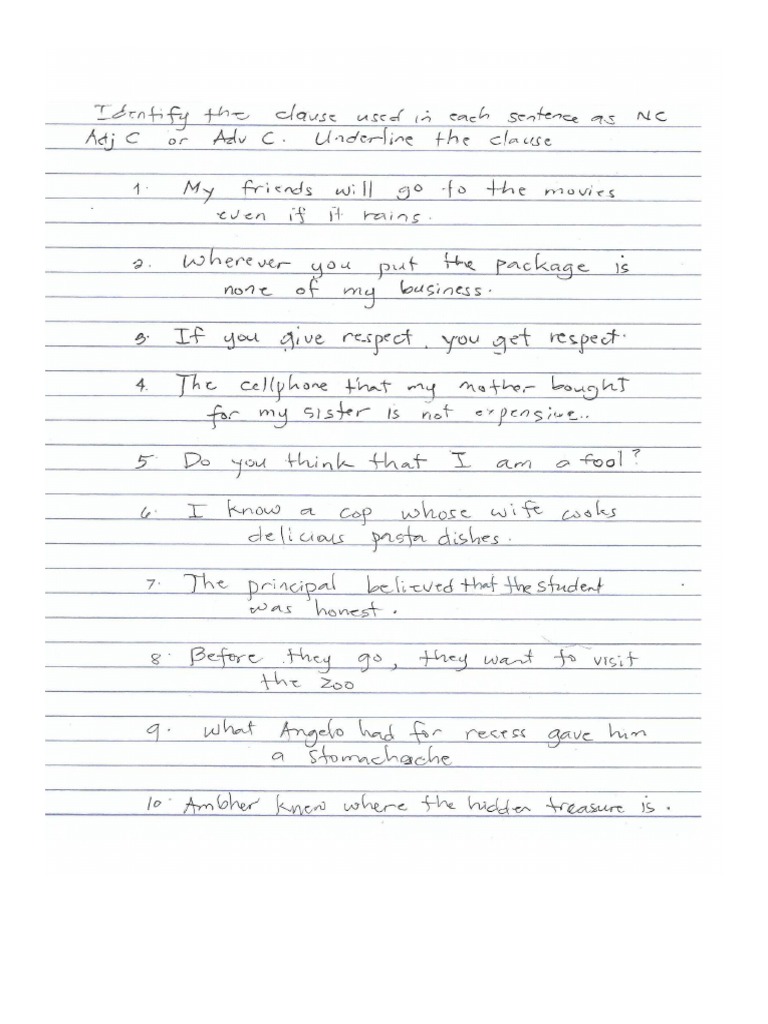 Identify the clause used in each sentence as NC
Adj C or Adv C. Underline the clause
1. My friends will go to the movies
even if it rains.
2. Wherever you put the package is
none of my business.
3. If you give respect, you get respect.
4. The cellphone that my mother bought
for my sister is not expensive..
5 Do you think that I am a fool?
6. I know a cop whose wife cooks
delicious pasta dishes.
7. The principal believed that the student
was honest.
8. Before they go, they want to visit
the zoo
9. What Angelo had for recess gave him
a stomachache
10. Ambher knew where the hidden treasure is.